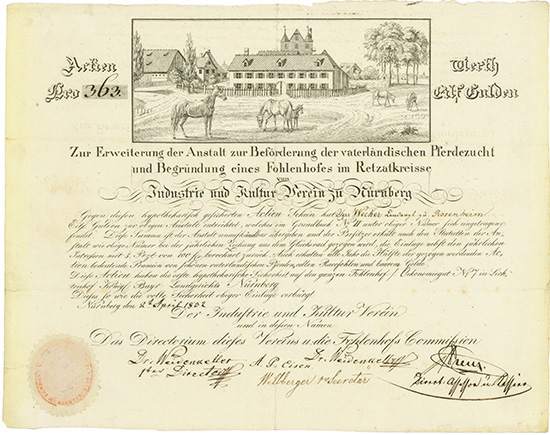 Actien
Nro 363.
Werth
Elf Gulden
Zur Erweiterung der Anstalt zur Beförderung der vaterländischen Pferdezucht
und Begründung eines Fohlenhofes im Retzatkreisse
vom
Industrie und Kultur Verein zu Nürnberg
Gegen diesen hypothekarisch gesicherten Actien Schein hat Wecker zu Rosenheim
Elf Gulden zur obigen Anstalt entrichtet, welches im Grundbuch No 11 unter obiger Numer sich eingetragen
findet. Diese Summe ist der Anstalt übergeben und der Besitzer erhält nach den Statuten der An-
stalt wie obige Numer bei der jährlichen Ziehung aus dem Glücksrad gezogen wird, die Einlage nebst den jährlichen
Interessen mit 5 Pzt von 100 fl berechnet zurück. Auch erhalten alle Jahr die Hälfte der gezogen werdenden Ac-
tien bedeutende Prämien von schönen vaterländischen Pferden, Racefohlen und baarem Gelde.
Diese Actien haben die erste hypothekarische Sicherheit auf den ganzen Fohlenhof, Oekonomiegut No 7 in Sich-
tenhof Königl Bayr Landgerichts Nürnberg
Dieses so wie die volle Sicherheit obiger Einlage verbürgt
Nürnberg den 2t April 1832
Der Industrie und Kulttur Verain
und in dessen Namen
Das Directorium dieses Vereins u. die Fohlenhofs Commission
Dr. Weidenkeller
1ter Director
A. P. Eisen
Dr. Weidenkeller
Wiltberger Secretär